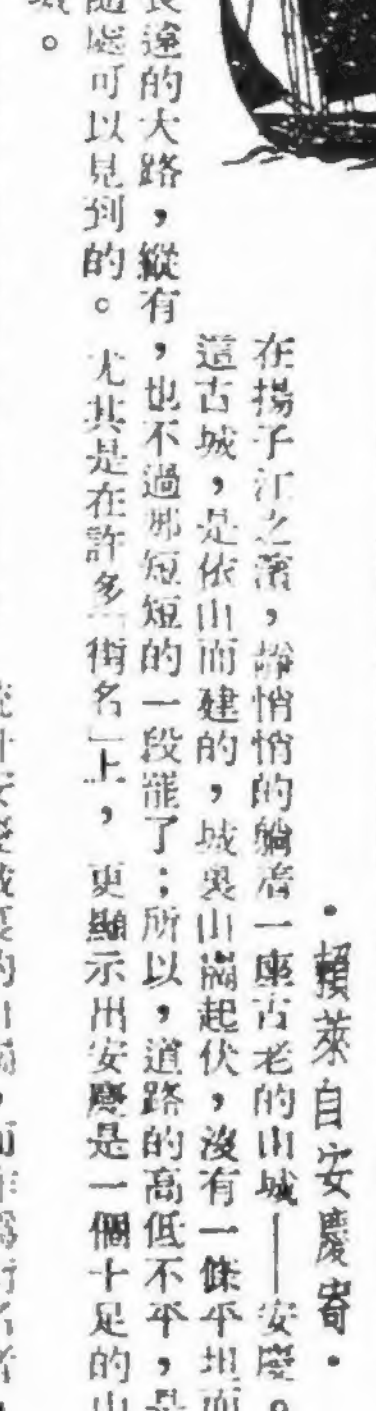 ·賴萊自安慶寄·
在揚子江之濱，靜悄悄的躺着一座古老的山城——安慶。
這古城，是依山而建的，城裏山崗起伏，沒有一條平坦而
長遠的大路，縱有，也不過那短短的一段罷了；所以，道路的高低不平，是
隨處可以見到的。尤其是在許多「街名」上，更顯示出安慶是一個十足的山
城。